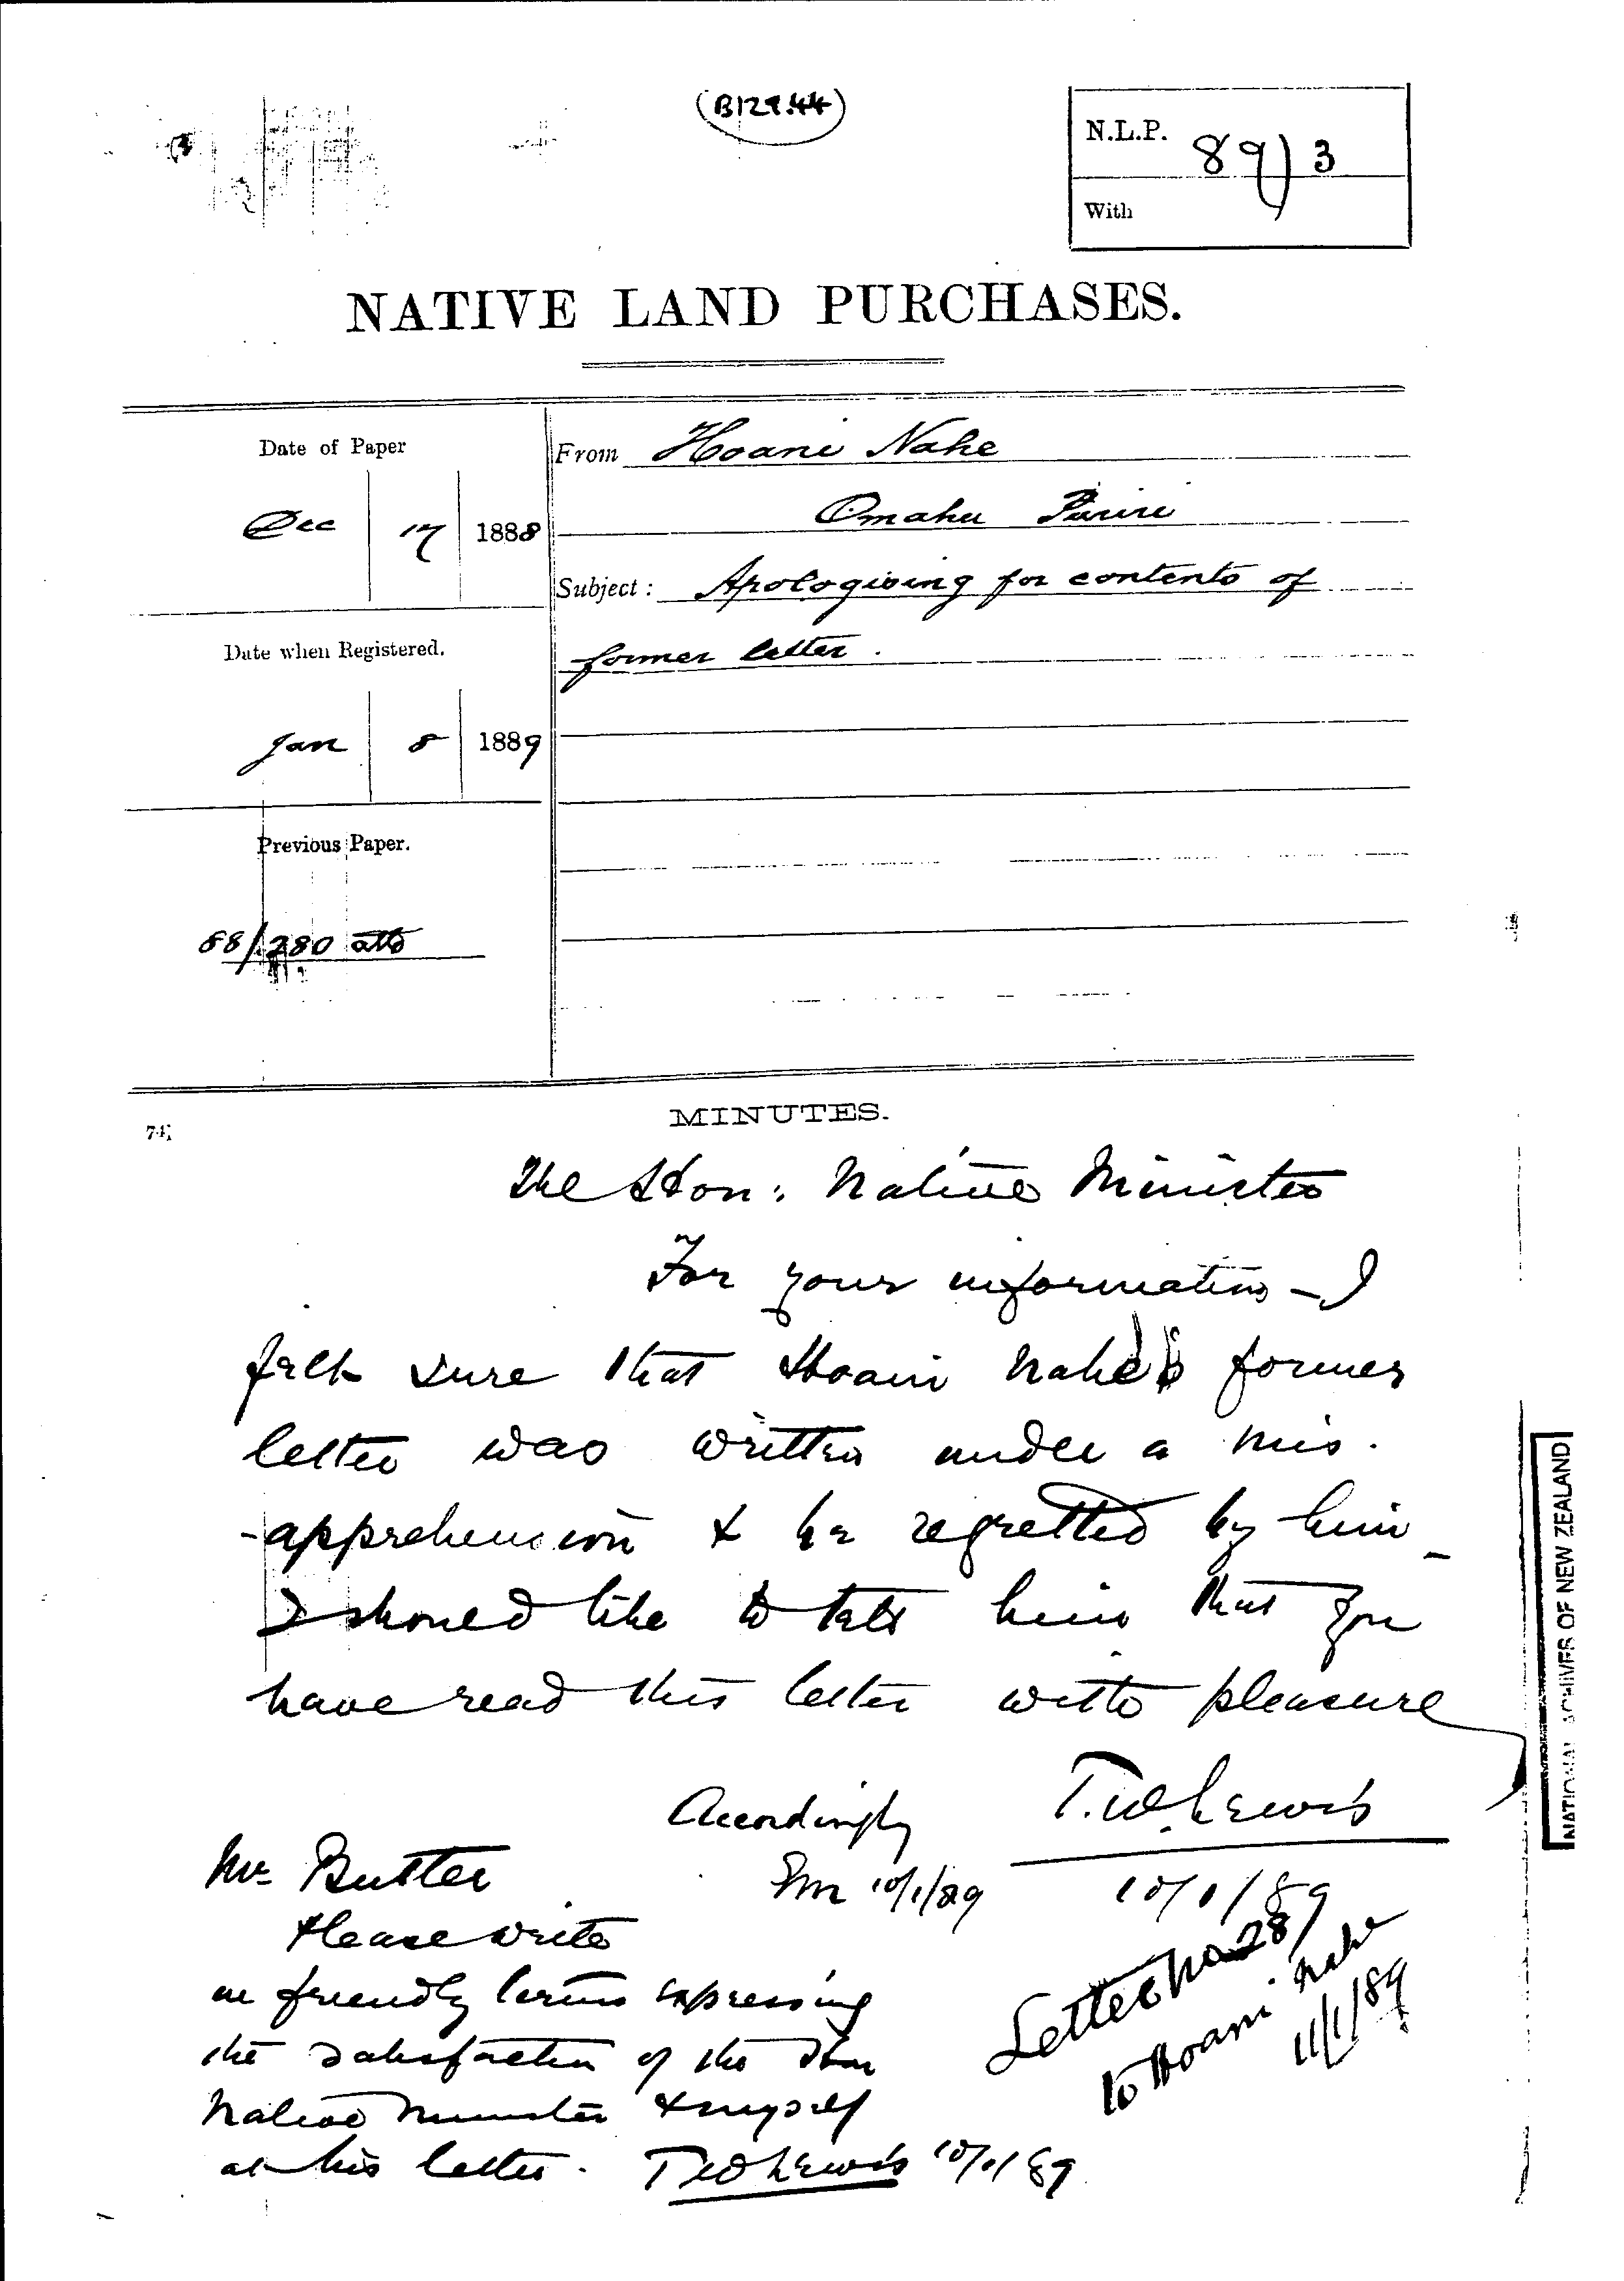 (B129.44)
N.L.P. 89/3
With
NATIVE LAND PURCHASES.
Date of Paper
Dec 17 1888
Date when Registered.
Jan 8 1889
Previous Paper.
88/280 atto
From Hoani Nahe
Omahu Puriri
Subject: Apologising for contents of
former letter.
MINUTES.
74,
The Hon: Native Minister
For your information - I
felt sure that Hoani Nahe's former
letter was written under a mis.
-apprehension & be regretted by him -
I should like to tell him that you
have read this letter with pleasure
T.W. Lewis
10/1/89
Accordingly
Em 10/1/89
Mr Butler
Please write
in friendly terms expressing
the satisfaction of the Hon
Native Minister & myself
at his letter. TW Lewis 10/1/89
Letter No 28
to Hoani Nahe
11/1/89
NATIONAL ARCHIVES OF NEW ZEALAND